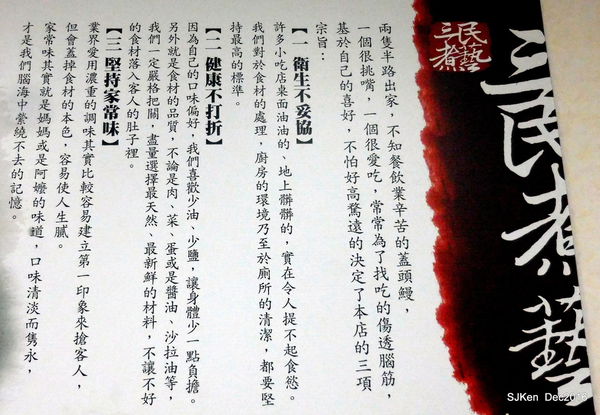 三民煮藝
三民煮藝
兩隻半路出家，不知餐飲業辛苦的蓋頭鰻，
一個很挑嘴，一個很愛吃，常常為了找吃的傷透腦筋，
基於自己的喜好，不怕好高騖遠的決定了本店的三項
宗旨：
【一 衛生不妥協】
許多小吃店桌面油油的、地上髒髒的，實在令人提不起食慾。
我們對於食材的處理，廚房的環境乃至於廁所的清潔，都要堅
持最高的標準。
【二 健康不打折】
因為自己的口味偏好，我們喜歡少油、少鹽，讓身體少一點負擔。
另外就是食材的品質，不論是肉、菜、蛋或是醬油、沙拉油等，
我們一定嚴格把關，盡量選擇最天然、最新鮮的材料，不讓不好
的食材落入客人的肚子裡。
【三 堅持家常味】
業界愛用濃重的調味其實比較容易建立第一印象來搶客人，
但會蓋掉食材的本色，容易使人生膩。
家常味其實就是媽媽或是阿嬤的味道，口味清淡而雋永，
才是我們腦海中縈繞不去的記憶。
SJKen Dec2016